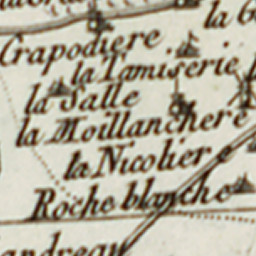 la G
Crapodiere
la Tamiserie
la Salle
la Moillanchere
la Nicolier
Roche blanche
andreau